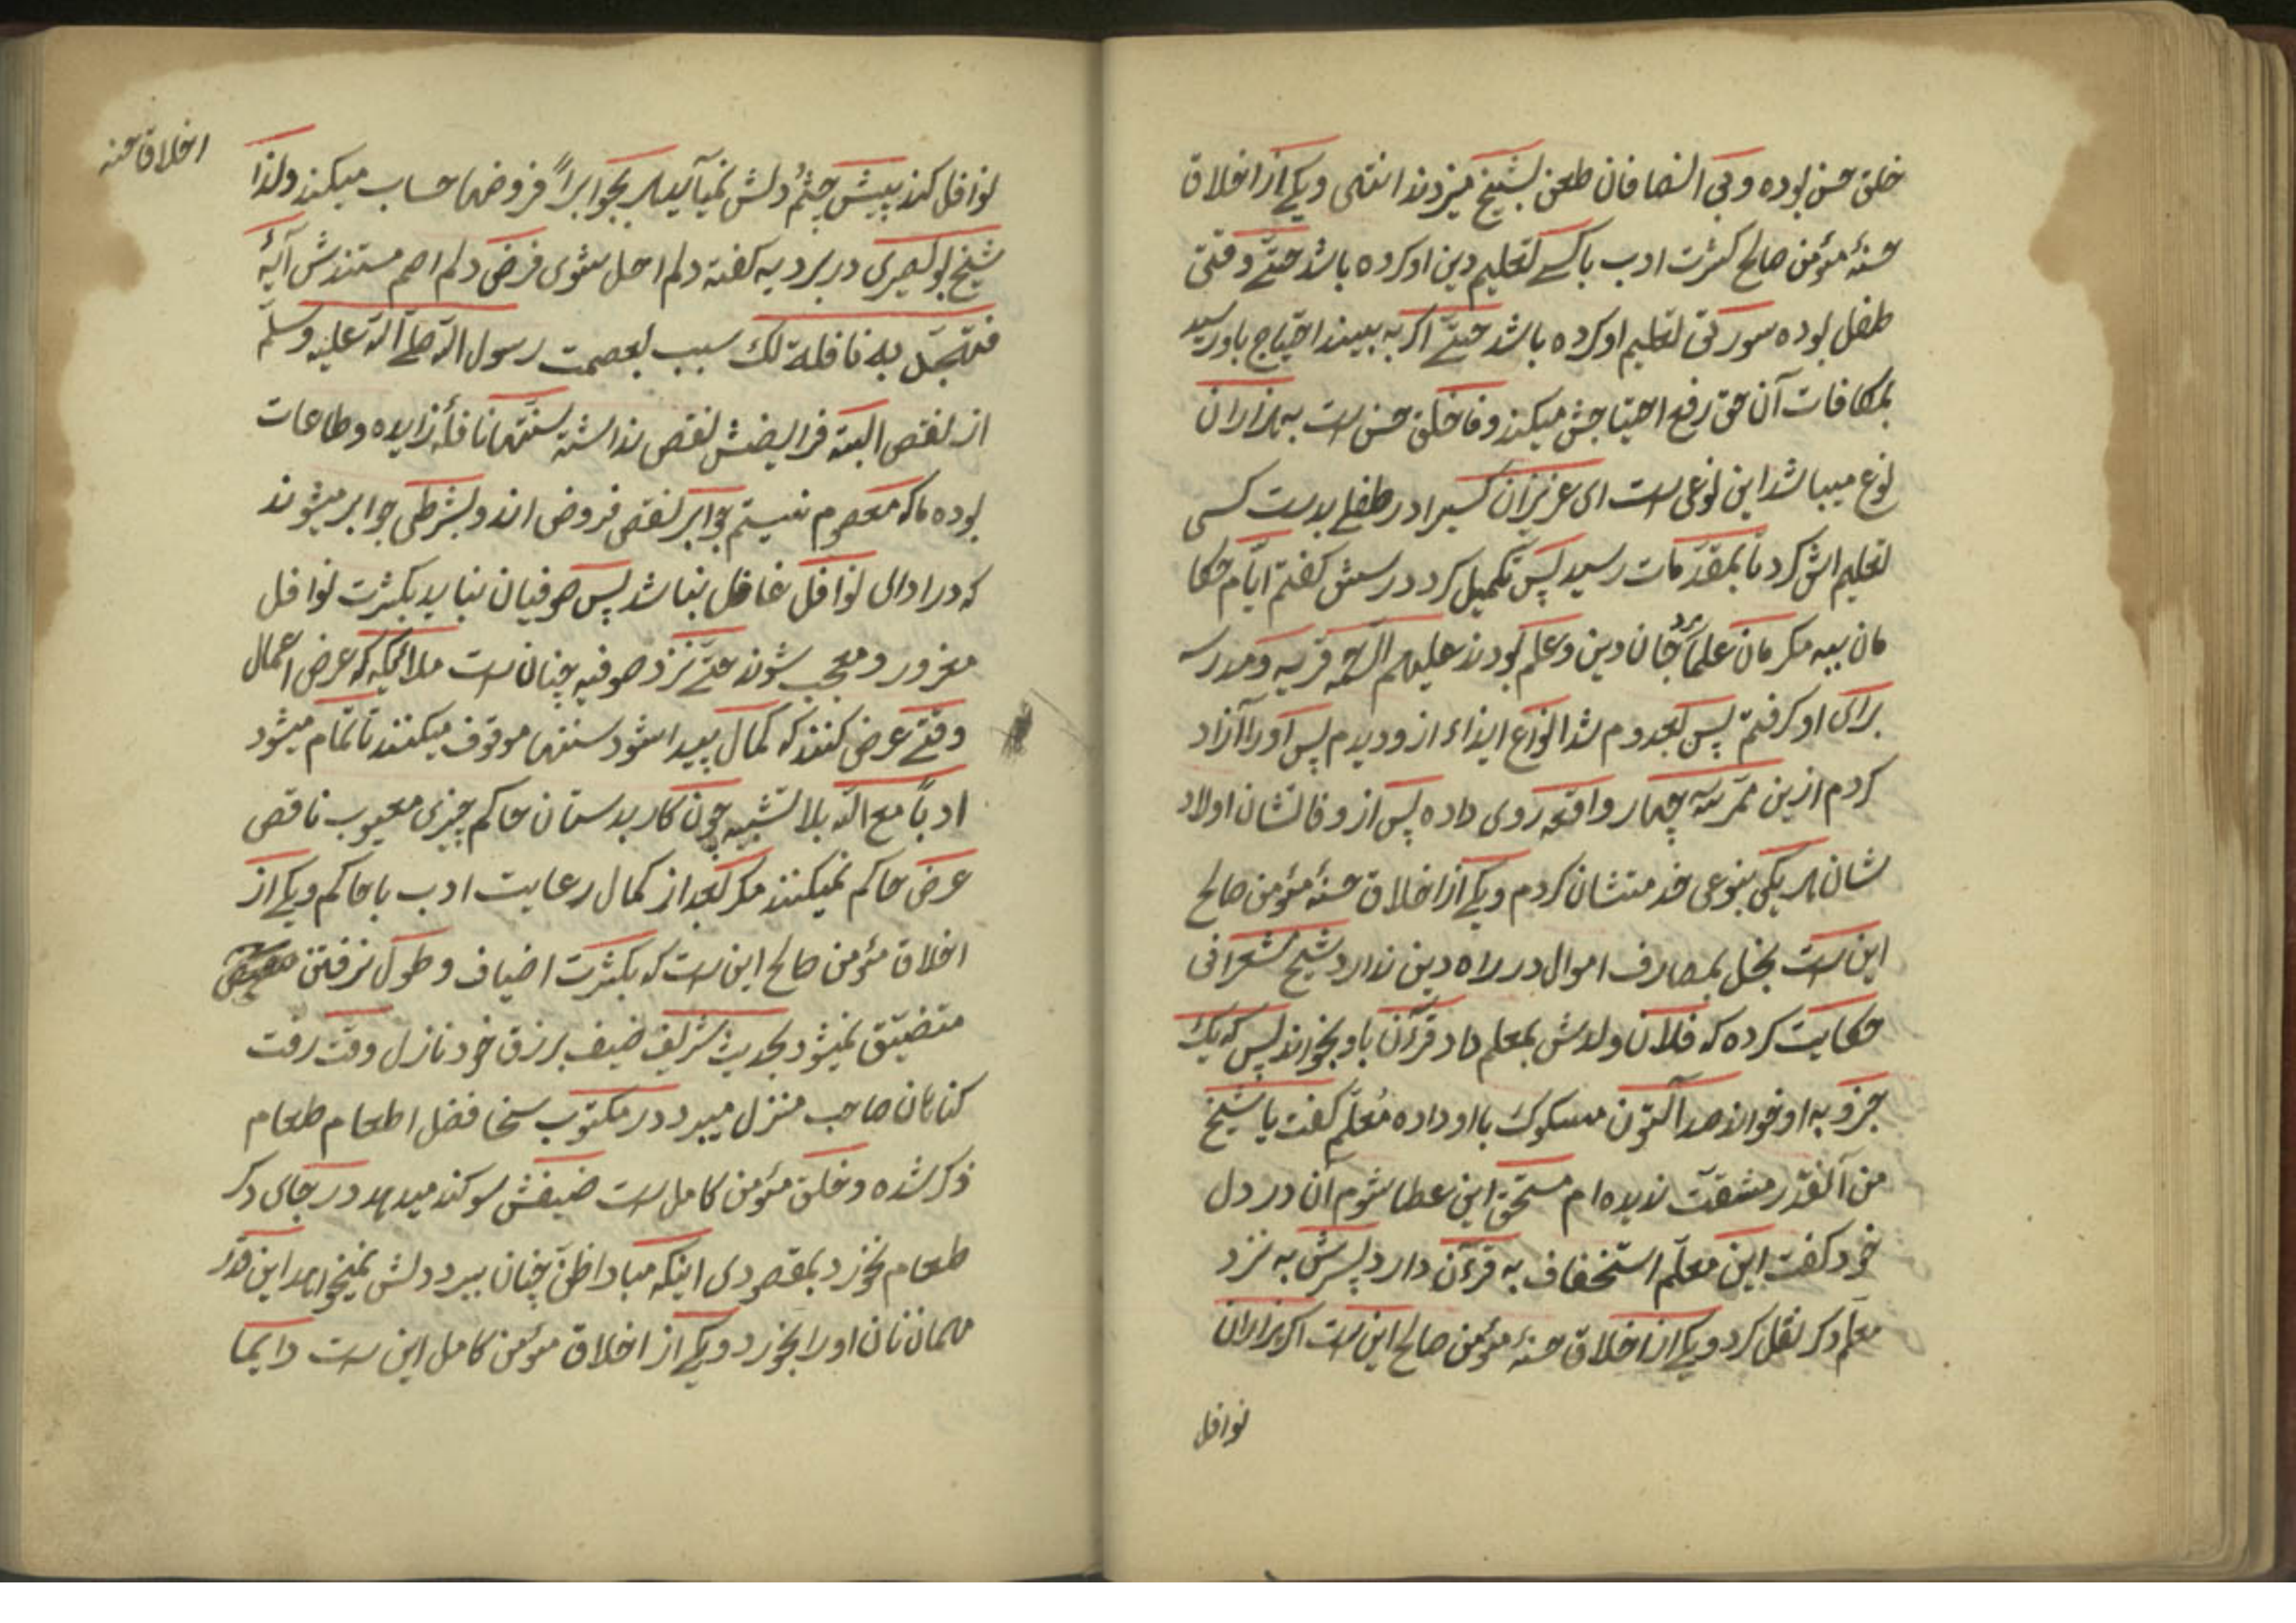 خلق حسن بوده و بی انصافان طعن بشیخ میزدند انتهی و یکی از اخلاق
حسنهٔ مؤمن صالح کثرت ادب با کسی تعلیم دین او کرده باشد حتّی وقتی
طفل بوده سورتی تعلیم او کرده باشد حتّی اکر به بیند احتیاج باو رسید
بمکافات آن حق رفع احتیاجش میکند وفا خلق حسن است به هزاران
نوع میباشد این نوعی است ای عزیزان کسیرا در طفلی بدست کسی
تعلیم اش کردتا بمقدّمات رسید پس تکمیل کرد درسش کفتم ایّام حکا
مان ببه مکرمان علما جان دین و علم بودند علیهم الرحمه قریه و مدرسه
برای او کرفتم پس بعد دوم شد انواع ایذاء از و دیدم پس اورا آزاد
کردم ازین ممرّ سه چهار واقعه روی داده پس از وفاتشان اولاد
شان هر یکی بنوعی خدمتشان کردم و یکی از اخلاق حسنهٔ مؤمن صالح
این است بخل بمصارف اموال در راه دین ندارد شیخ شعرانی
حکایت کرده که فلان ولدش بمعلم داد قرآن باو بخواند پس که یک
جزو به او خواند صد آلتون مسکوک با او داده مُعلّم کفت یا شیخ
من آنقدر مشقّت ندیده ام مستحق این عطا شوم آن در دل
خود کفت این معلّم استخفاف به قرءآن دارد پسرش به نزد
معلّم دکر نقل کرد و یکی از اخلاق حسنهٔ مؤمن صالح این است اکر هزاران
نوافل
اخلاق حسنه
نوافل کند پیش چشمُ دلش نمیآید بجوابراً فروضها حساب میکند ولذا
شیخ بوصیری در بردیه کفته ولم اصل سوی فرض ولم اصم مستندش آیهٔ
فتهجّد به نافلة لك سبب بعصمت رسول الله صلّی الله علیه وسلّم
از نقص البته فرایضش نقص نداشته سنّتها نافلهٔ زایده و طاعات
بوده ما که معصوم نیستیم جوابر نقص فروض اند و بشرطی جوابر میشوند
که در ادای نوافل غافل نباشد پس صوفیان نباید بکثرت نوافل
مغرور و معجب شوند حتّی نزد صوفیه چنان است ملائیکه که عرض اعمال
وقتی عرض کنند که کمال پیدا شود سنتها موقوف میکنند تا تمام میشود
ادباً مع الله بلا تشبیه چون کار بدستان حاکم چیزی معیوب ناقص
عرض حاکم نمیکنند مکر بعد از کمال رعایت ادب با حاکم و یکی از
اخلاق مؤمن صالح این است که بکثرت اضیاف و طول نرفتن
متضیّق نمیشود بحدیث شریف ضیف برزق خود نازل وقت رفت
کناهان صاحب منزل میبرد در مکتوب سخا فضل اطعام طعام
ذکر شده و خلق مؤمن کامل است ضیفش سوکند میدهد در جای دکر
طعام نخورد بمقصودی اینکه مبادا ظنّ چنان ببرد دلش نمیخواهد این قدر
مهمان نان او را بخورد و یکی از اخلاق مؤمن کامل این است دایما